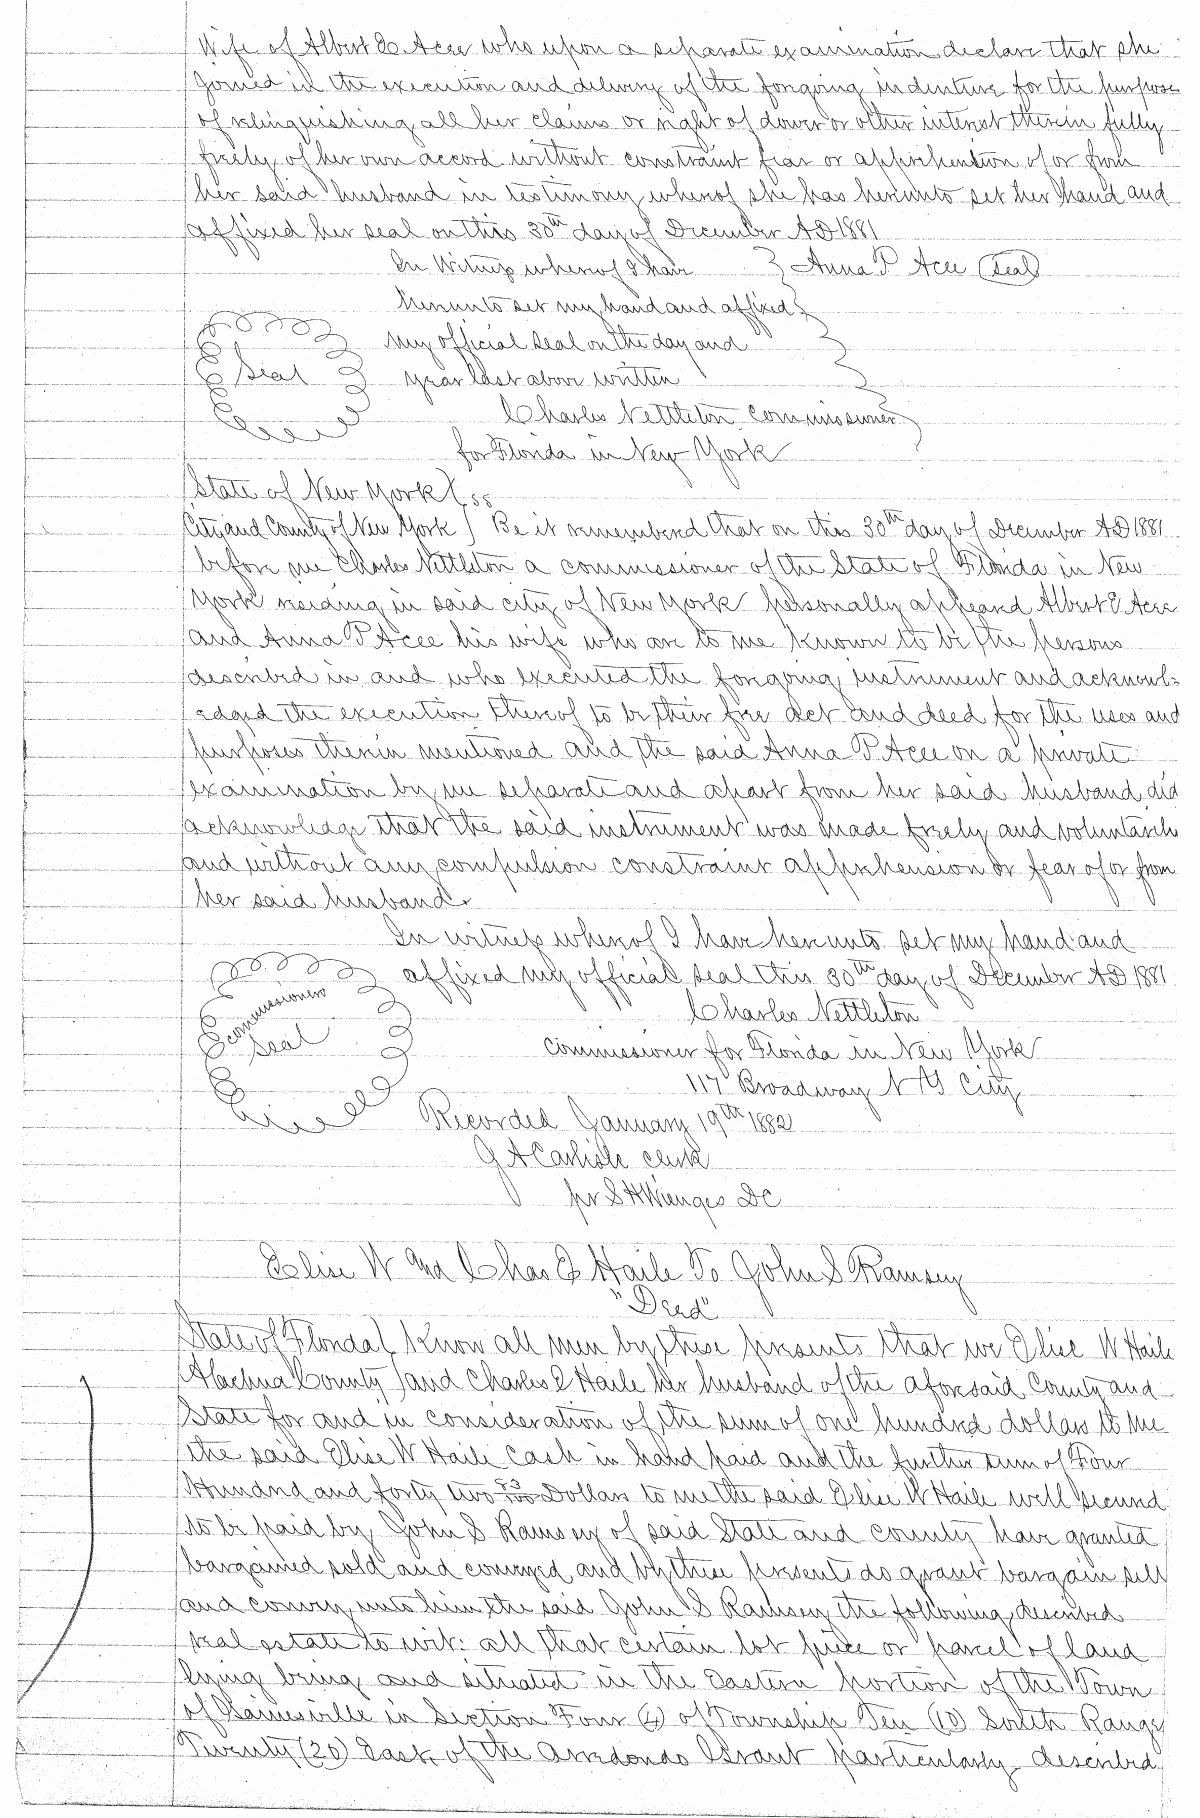 Wife of Albert E Acee who upon a separate examination declare that she
joined in the execution and delivery of the foregoing indenture for the purpose
of relinquishing all her claims or right of dower or other interest therein fully
freely of her own accord without constraint fear or apprehention of or from
her said husband in testimony whereof she has hereunto set her hand and
affixed her seal on this 30th day of December AD 1881
In Witness whereof I have } Anna P Acee (seal)
hereunto set my hand and affixed
my official seal on the day and
Seal year last above written
Charles Nettleton commissioner
for Florida in New York
State of New York } ss
City and County of New York } Be it remembered that on this 30th day of December AD 1881
before me Charles Nettleton a commissioner of the State of Florida in New
York residing in said city of New York personally appeared Albert E Acee
and Anna P Acee his wife who are to me known to be the persons
described in and who executed the foregoing instrument and acknowl=
edged the execution thereof to be their free act and deed for the uses and
purposes therein mentioned and the said Anna P Acee on a private
examination by me separate and apart from her said husband did
acknowledge that the said instrument was made freely and voluntarily
and without any compulsion constraint apprehension or fear of or from
her said husband.
In witness whereof I have hereunto set my hand and
affixed my official seal this 30th day of December AD 1881
commissioners Seal
Charles Nettleton
commissioner for Florida in New York
117 Broadway N Y City
Recorded January 19th 1882
J A Carlisle clerk
pr S H Wienges DC
Elise W and Chas E Haile To John S Ramsey
"Deed"
State of Florida } Know all men by these presents that we Elise W Haile
Alachua County } and Charles E Haile her husband of the aforesaid County and
State for and in consideration of the sum of one hundred dollars to me
the said Elise W Haile cash in hand paid and the further sum of Four
Hundred and forty two 83/100 Dollars to me the said Elise W Haile well secured
to be paid by John S Ramsey of said State and county have granted
bargained sold and conveyed and by these presents do grant bargain sell
and convey unto him the said John S Ramsey the following described
real estate to wit: all that certain lot piece or parcel of land
lying being and situated in the Eastern portion of the Town
of Gainesville in Section Four (4) of Township Ten (10) South Range
Twenty (20) East of the Arredondo Grant particularly described